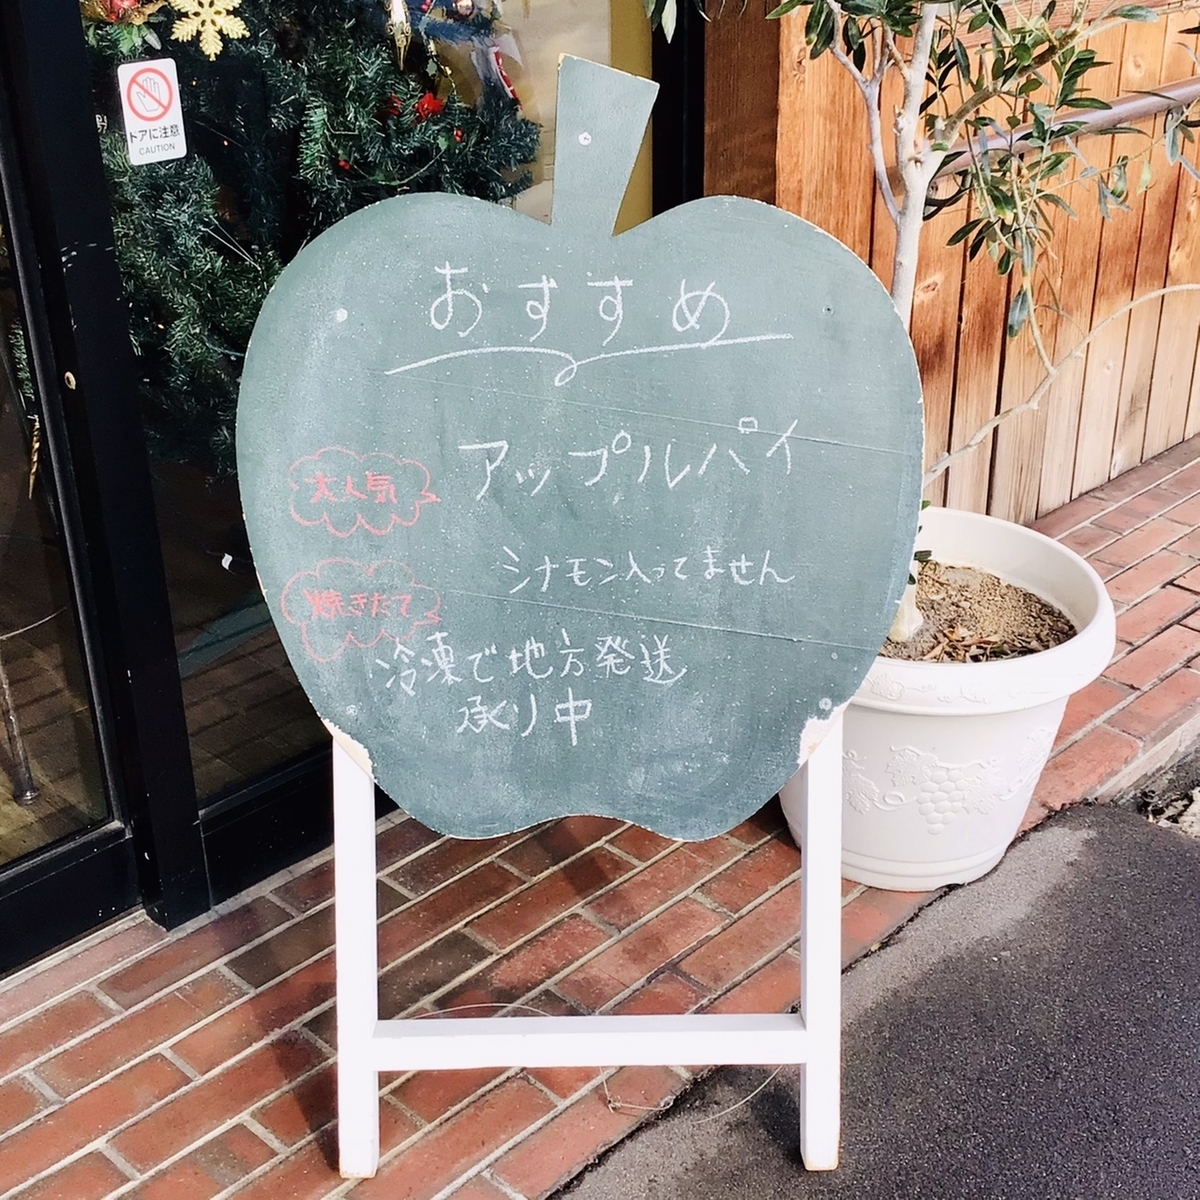 ドアに注意
CAUTION
おすすめ
アップルパイ
大人気
シナモン入ってません
焼きたて
冷凍で地方発送
承り中